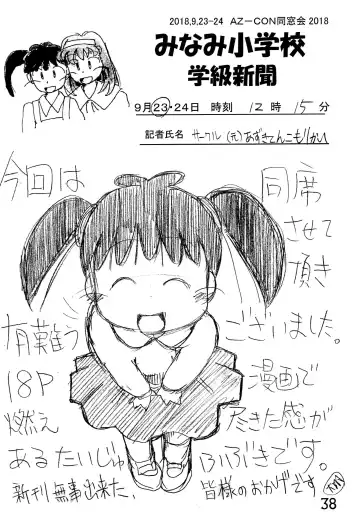 2018,9,23-24 AZ-CON同窓会 2018
みなみ小学校
学級新聞
9月23・24日 時刻 12時 15分
記者氏名 サークル (元)あずきてんこもりかい
今回は 同席
させて
頂き
有難う ございました。
18P 漫画で
燃え 尽きた感が
あるたいじゅ ふぶきです。
新刊無事出来た、皆様のおかげです
38